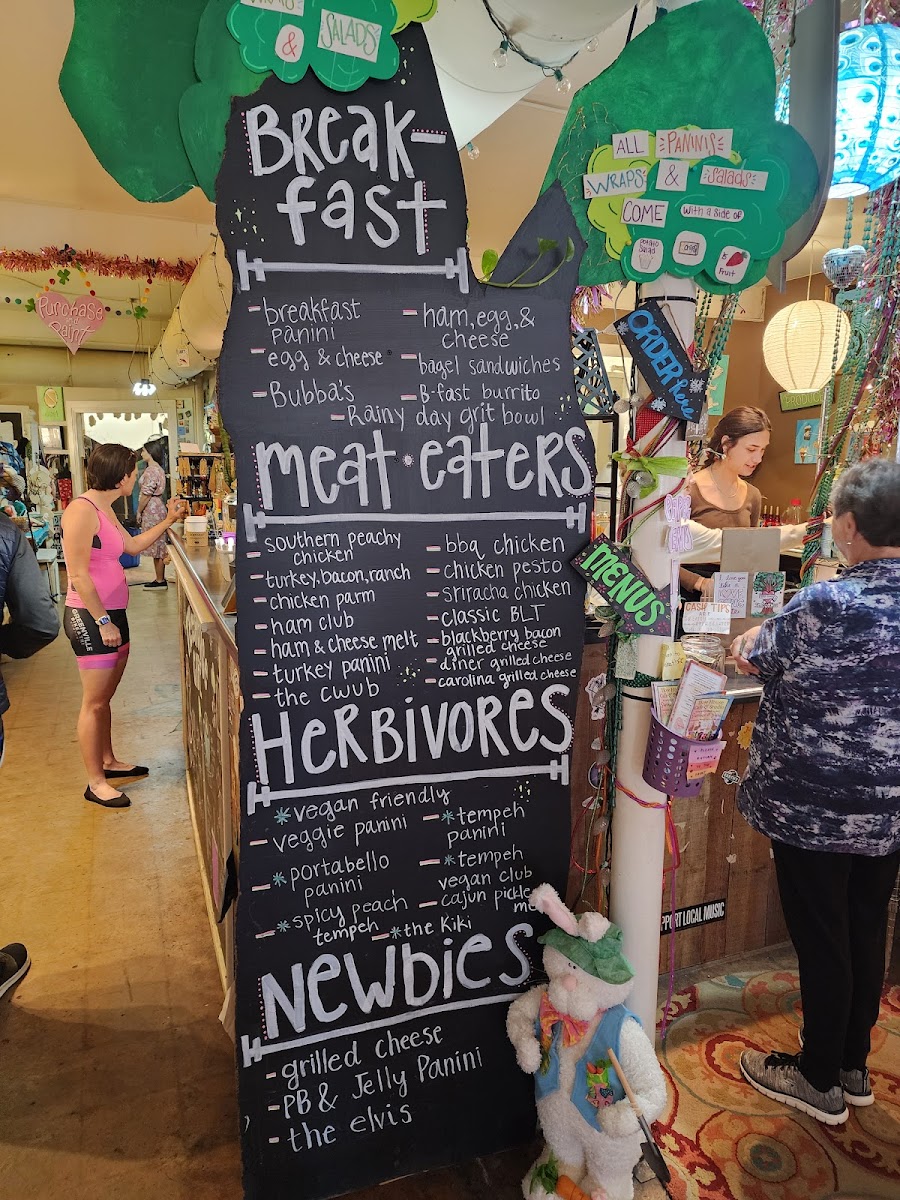 WRAPS
&
SALADS
BreaK-
fast
- breakfast
panini
- egg & cheese
- Bubba's
- ham, egg, &
cheese
- bagel sandwiches
- B-fast burrito
- Rainy day grit bowl
meat eaters
- southern peachy
chicken
- turkey, bacon, ranch
- chicken parm
- ham club
- ham & cheese melt
- turkey panini
- the cwub
- bbq chicken
- chicken pesto
- sriracha chicken
- classic BLT
- blackberry bacon
grilled cheese
- diner grilled cheese
- carolina grilled cheese
HerBivores
* vegan friendly
- veggie panini
- * portabello
panini
- * spicy peach
tempeh
- * tempeh
panini
- * tempeh
vegan club
- cajun pickle
me
- * the Kiki
Newbies
- grilled cheese
- PB & Jelly Panini
- the elvis
ALL PANINIS
WRAPS & Salads
COME with a side of
POTATO
Salad
FRUIT
ORDER here
MENUS
CASH TIPS
Purchase
Paint
GREENVILLE
SUPPORT LOCAL MUSIC